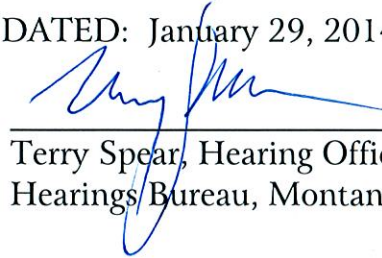 DATED: January 29, 2014
Terry Spear, Hearing Offic
Hearings Bureau, Montan